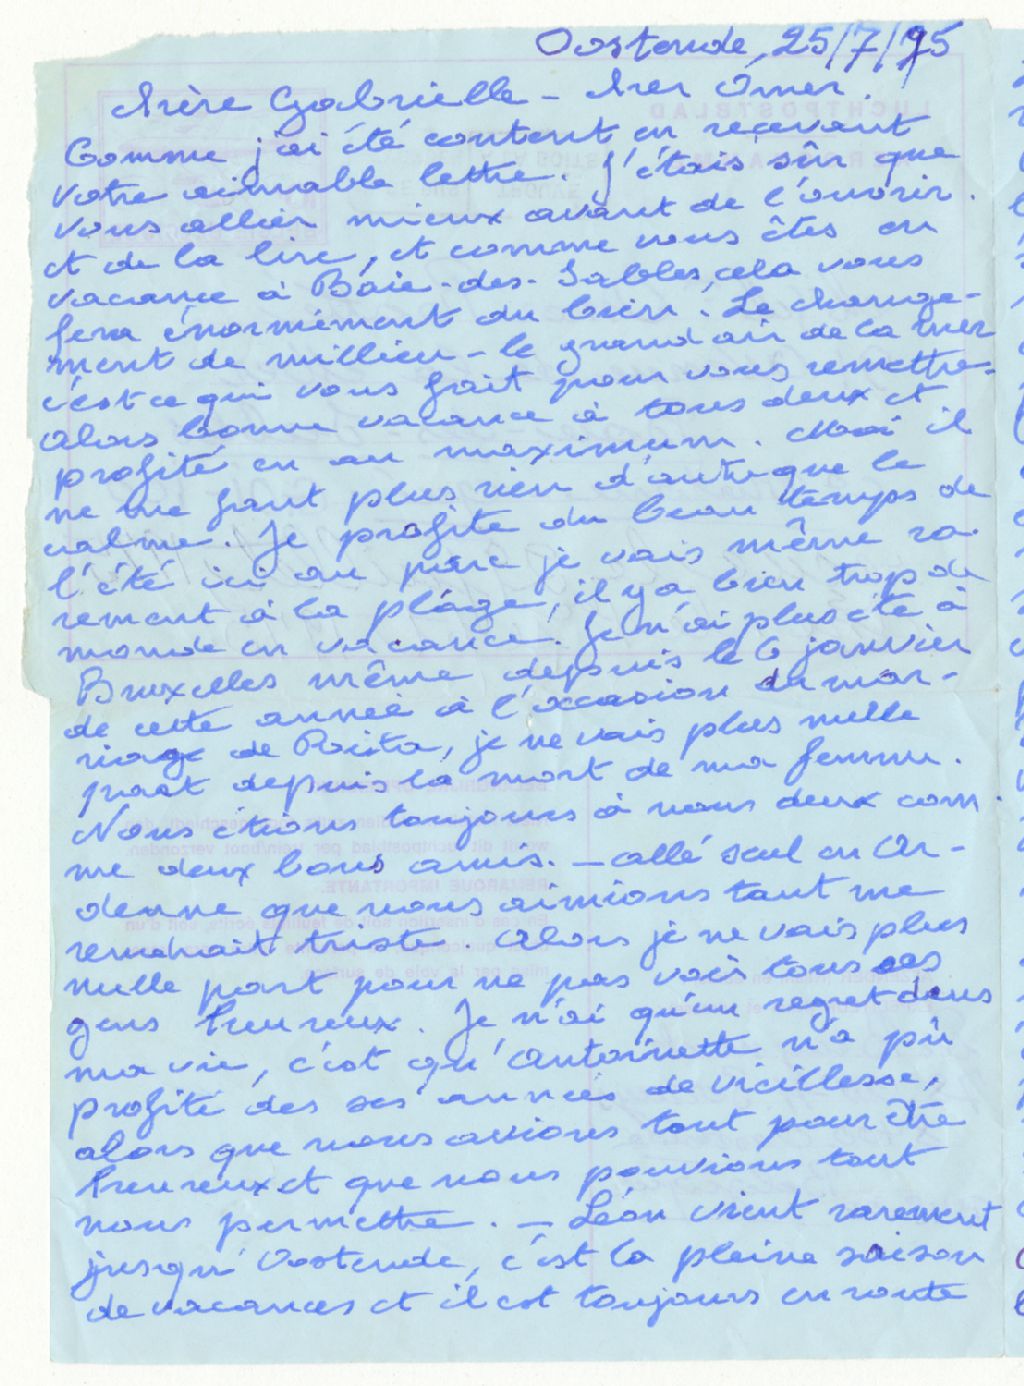 Oostende, 25/7/75
Chère Gabrielle - cher Omer.
Comme j'ai été content en recevant
votre aimable lettre. J'étais sûr que
vous allier mieux avant de l'ouvrir.
et de la lire, et comme vous êtes en
vacance à Baie-des-Sables, cela vous
fera énormément du bien. Le change-
ment de millieu - le grand air de la mer
c'est ce qui vous fait pour vous remettre.
Alors bonne vacance à tous deux et
profité en au maximum. Moi il
ne me faut plus rien d'autre que le
calme. Je profite du beau temps de
l'été ici au parc je vais même ra-
rement à la plage, il y a bien trop de
monde en vacance. Je n'ai plus été à
Bruxelles même depuis le 6 janvier
de cette année à l'occasion du mar-
riage de Rita, je ne vais plus nulle
part depuis la mort de ma femme.
Nous étions toujours à nous deux com-
me deux bons amis. - allé seul en Ar-
denne que nous aimions tant me
rendrait triste. Alors je ne vais plus
nulle part pour ne pas voir tous ces
gens heureux. Je n'ai qu'un regret dans
ma vie, c'est qu'Antoinette n'a pû
profité des ses années de vieillesse,
alors que nous avions tout pour être
heureux et que nous pouvions tout
nous permettre. - Léon vient rarement
jusqu'Oostende, c'est la pleine saison
de vacances et il est toujours en route